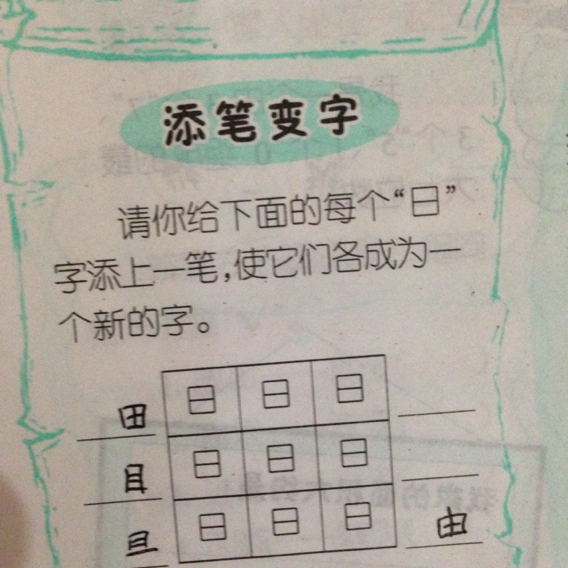 添笔变字
请你给下面的每个“日”
字添上一笔,使它们各成为一
个新的字。
田 日 日 日
目 日 日 日
旦 日 日 日 由